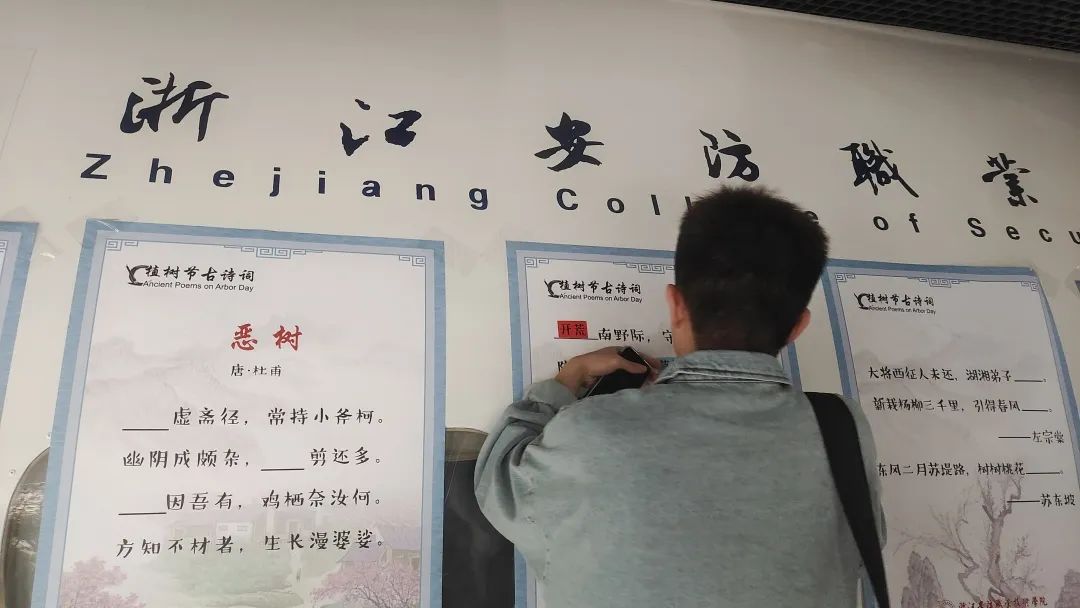 浙江安防職業
Zhejiang Coll e of Secu
植树节古诗词
Ancient Poems on Arbor Day
恶树
唐·杜甫
___虚斋径，常持小斧柯。
幽阴成颇杂，___剪还多。
___因吾有，鸡栖奈汝何。
方知不材者，生长漫婆娑。
植树节古诗词
Ancient Poems on Arbor Day
开荒南野际，守
植树节古诗词
Ancient Poems on Arbor Day
大将西征人未还，湖湘弟子___。
新栽杨柳三千里，引得春风___。
——左宗棠
东风二月苏堤路，树树桃花___。
——苏东坡
浙江安防职业技术学院